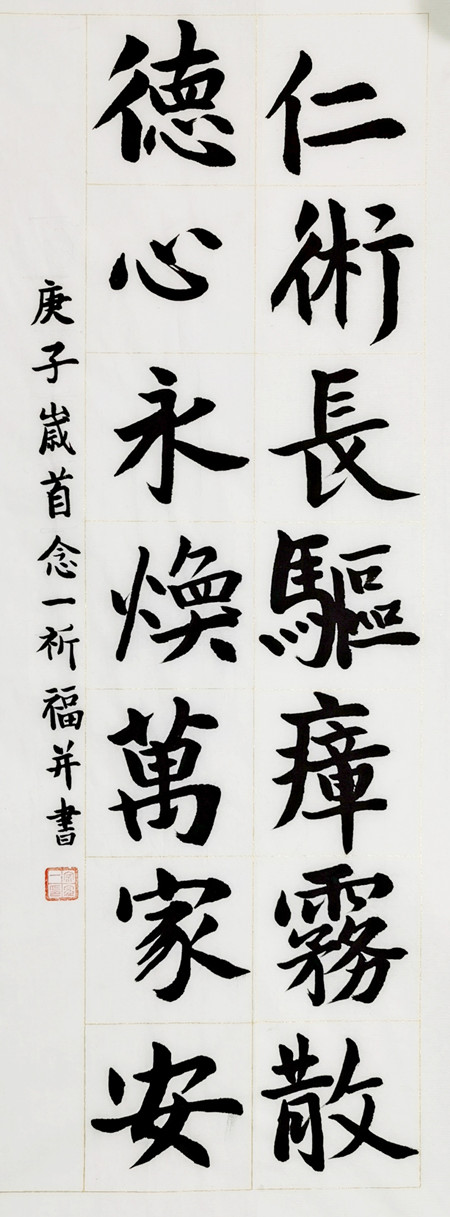 仁術長驅瘴霧散
德心永煥萬家安
庚子歲首念一祈福并書